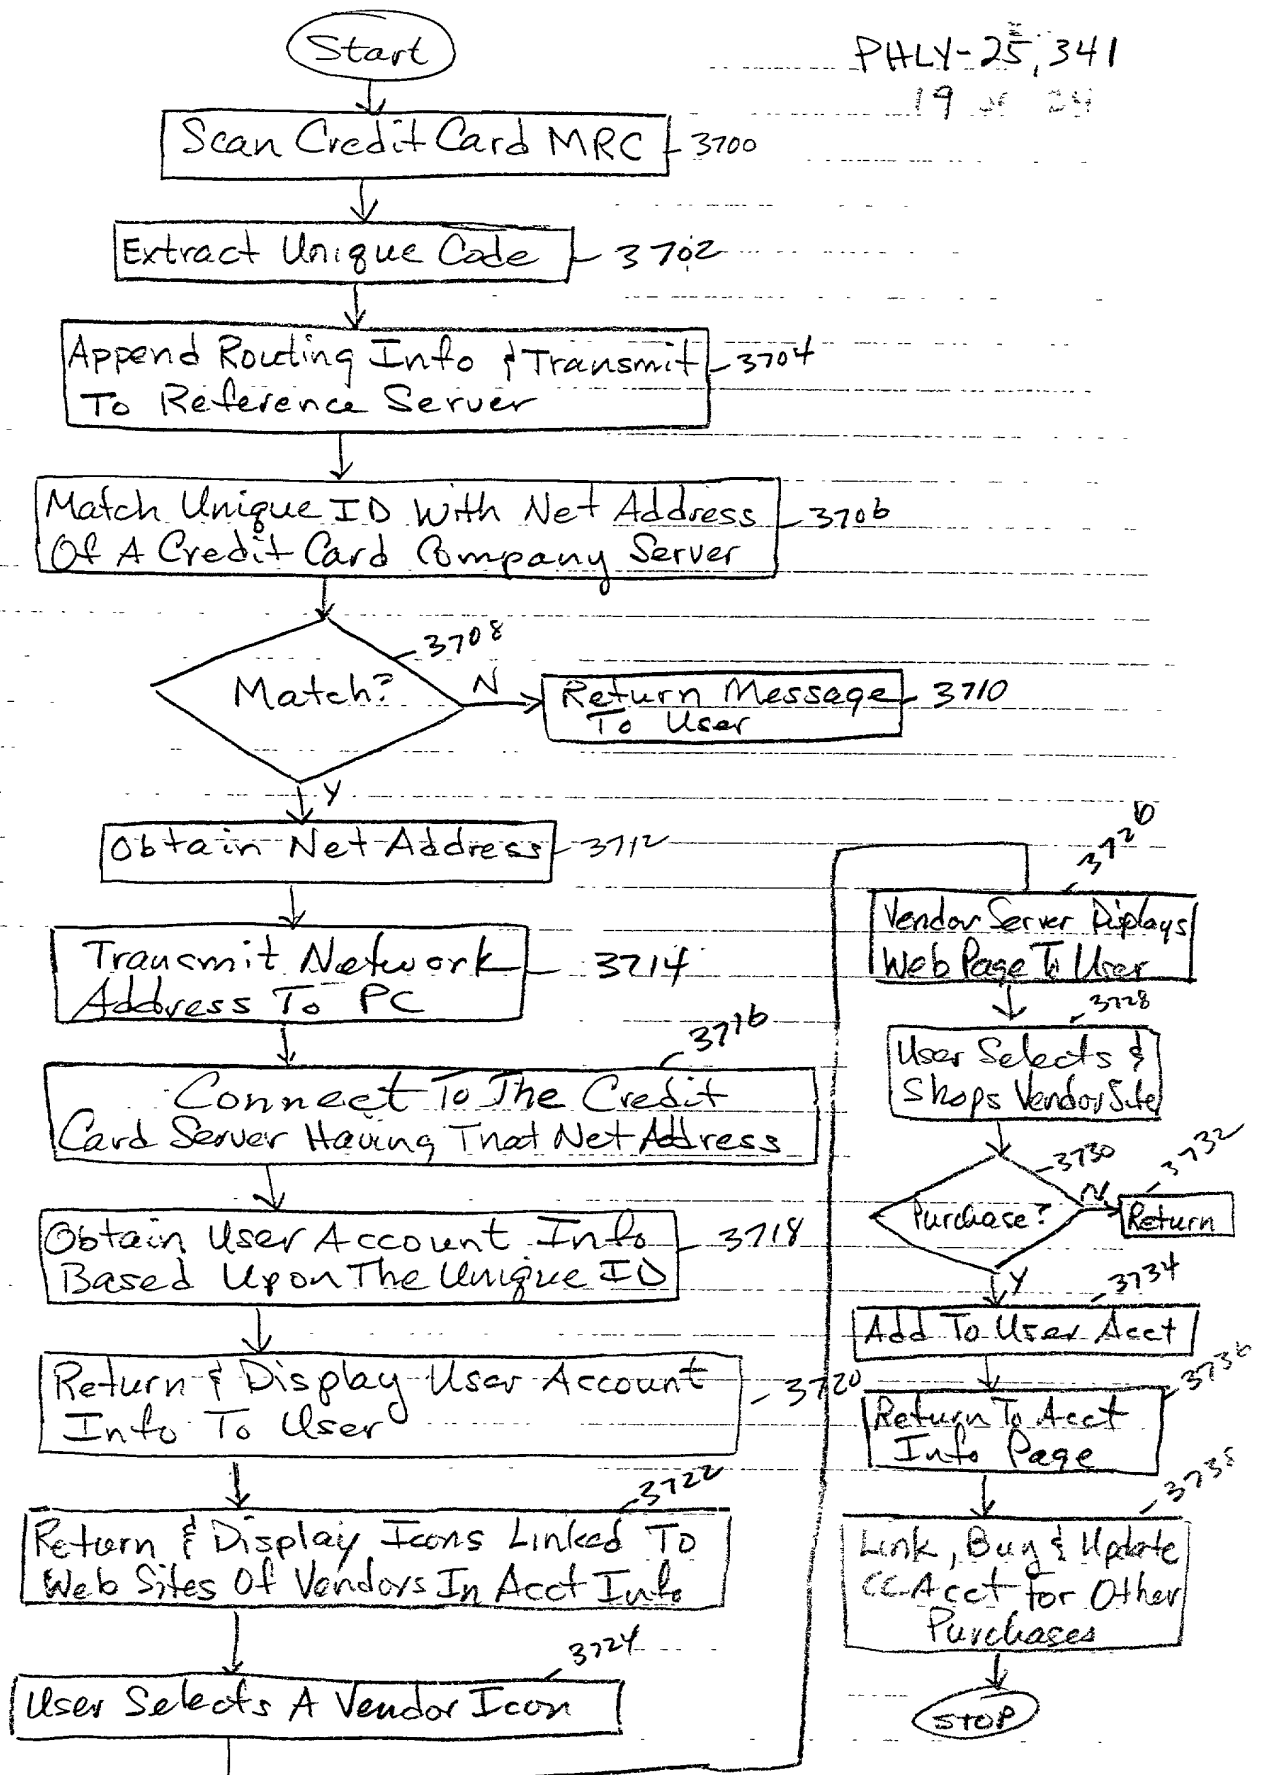 Start
PHLY-25,341
19 of 24
Scan Credit Card MRC
3700
Extract Unique Code
3702
Append Routing Info & Transmit
To Reference Server
3704
Match Unique ID With Net Address
Of A Credit Card Company Server
3706
Match?
3708
N
Return Message
To User
3710
Y
Obtain Net Address
3712
Transmit Network
Address To PC
3714
Connect To The Credit
Card Server Having That Net Address
3716
Obtain User Account Info
Based Upon The Unique ID
3718
Return & Display User Account
Info To User
3720
Return & Display Icons Linked To
Web Sites Of Vendors In Acct Info
3722
User Selects A Vendor Icon
3724
Vendor Server Displays
Web Page To User
3726
User Selects &
Shops Vendor Site
3728
Purchase?
3730
N
Return
3732
Y
Add To User Acct
3734
Return To Acct
Info Page
3736
Link, Buy & Update
CC Acct for Other
Purchases
3738
STOP